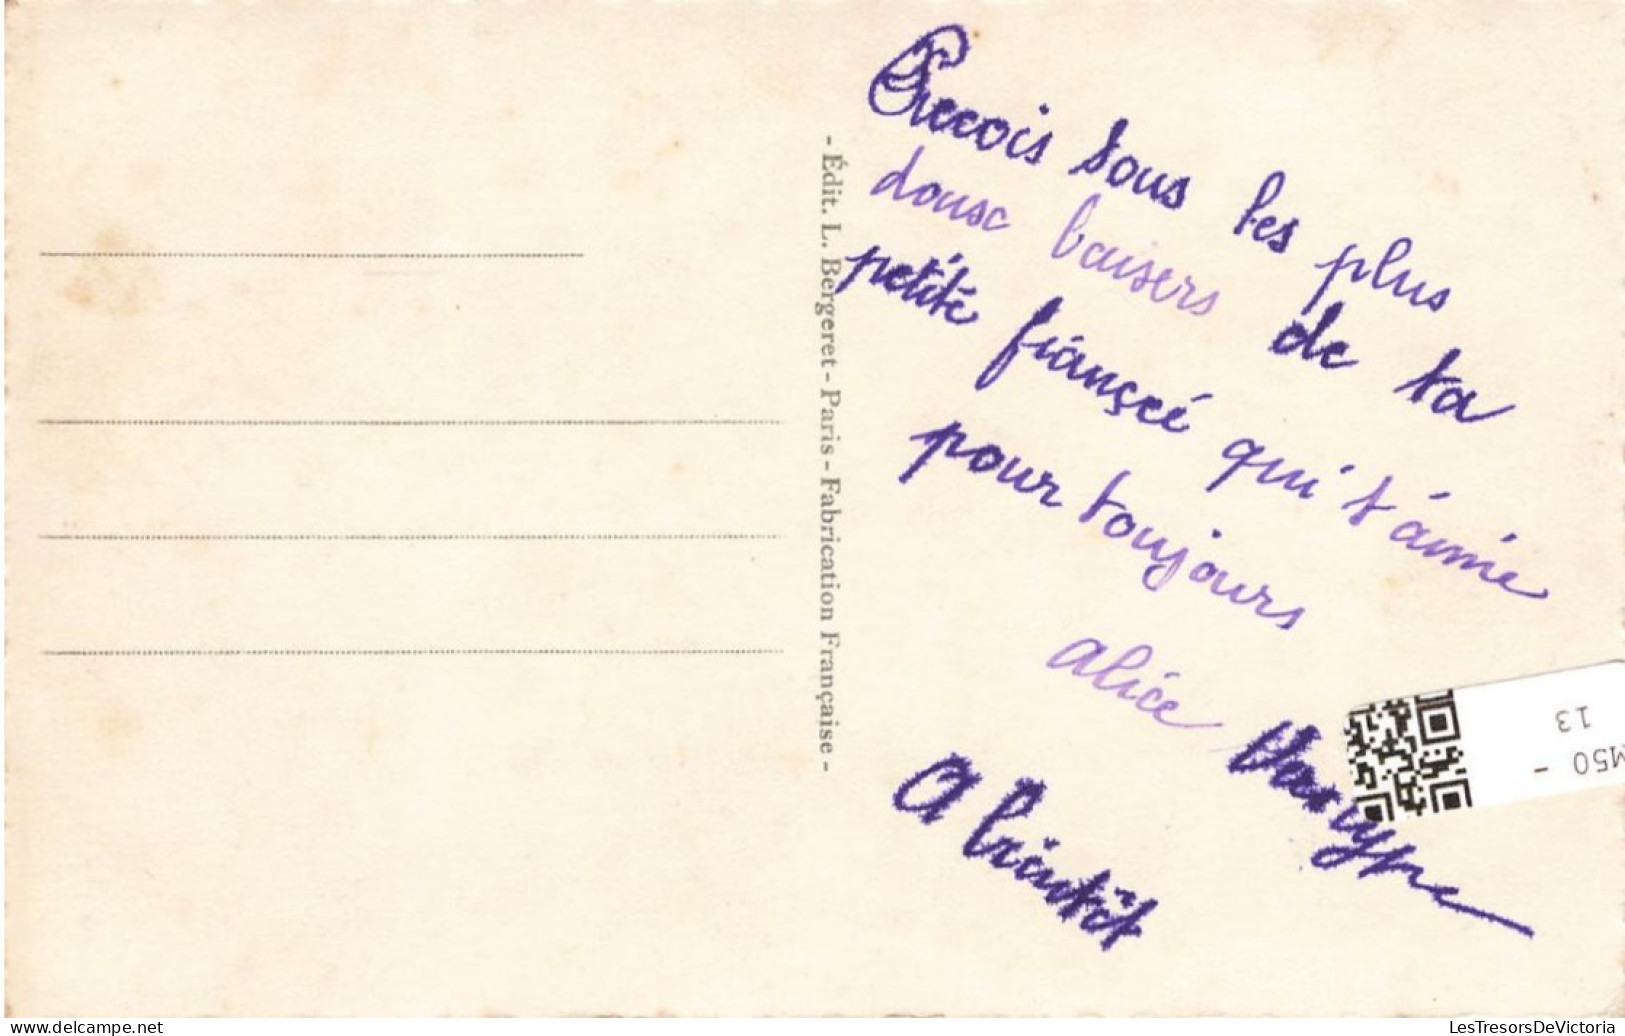 - Édit. L. Bergeret - Paris - Fabrication Française -
Recois tous les plus
doux baisers de ta
petite fiançeé qui t'aime
pour toujours
alice
A bientôt
M50 -
13
www.delcampe.net
LesTresorsDeVictoria